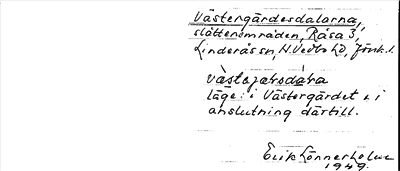 Västengärdesdalarna,
slåttenområden, Råsa 3,
Linderås sn, N. Vedbo hd, Jönk. l.
västəjæṛsdáṛa
läge: i Västergärdet o i
anslutning därtill.
Erik Lönnerholm
1949.